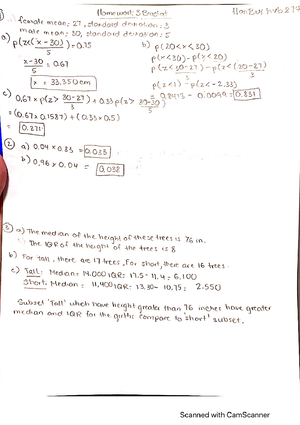 Homework 3
1) female mean: 27, standard deviation: 3
male mean: 30, standard deviation: 5
a) P(z<(x-30)/5)=0.75
x-30/5 = 0.67
x = 33.350cm
b) P(20<x<30)
P(x<30)-P(x<20)
P(z<30-27/3)-P(z<(20-27)/3)
P(z<1)-P(z<-2.33)
= 0.8413 - 0.0099 = 0.831
c) 0.67 × P(z> 30-27/3) + 0.33 P(z> 30-30/5)
= (0.67×0.1587) + (0.33×0.5)
= 0.271
2) a) 0.04 × 0.83 = 0.033
b) 0.96 × 0.04 = 0.038
3) a) The median of the height of these trees is 76 in.
The IQR of the height of the trees is 8
b) For tall, there are 17 trees, For short, there are 16 trees.
c) Tall: Median= 14.000 IQR: 17.5 - 11.4 = 6.100
Short: Median= 11,400 IQR: 13.30 - 10.75 = 2.550
Subset 'Tall' which have height greater than 76 inches have greater
median and IQR for the girths compare to 'short' subset.
Scanned with CamScanner